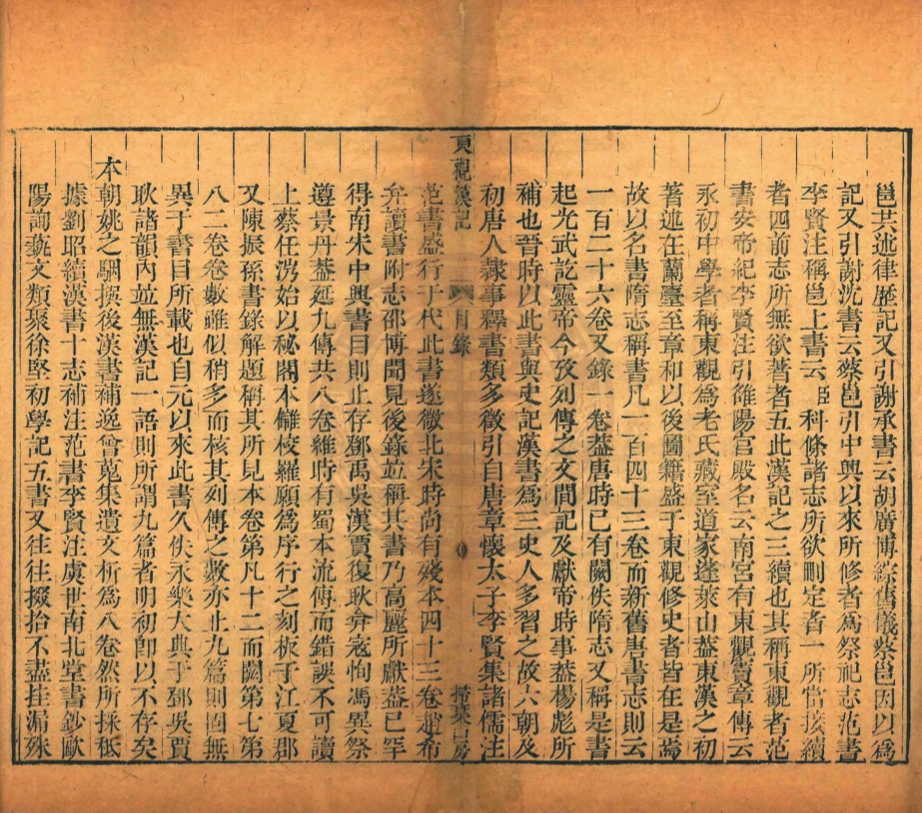 邕共述律歷記又引謝承書云胡廣博綜舊儀蔡邕因以爲
記又引謝沈書云蔡邕引中興以來所修者爲祭祀志范書
李賢注稱邕上書云臣科條諸志所欲刪定者一所當接續
者四前志所無欲著者五此漢記之三續也其稱東觀者范
書安帝紀李賢注引雒陽宮殿名云南宮有東觀竇章傳云
永初中學者稱東觀爲老氏藏室道家蓬萊山蓋東漢之初
著述在蘭臺至章和以後圖籍盛于東觀修史者皆在是焉
故以名書隋志稱書凡一百四十三卷而新舊唐書志則云
一百二十六卷又錄一卷蓋唐時已有闕佚隋志又稱是書
起光武訖靈帝今攷列傳之文間記及獻帝時事蓋楊彪所
補也晉時以此書與史記漢書爲三史人多習之故六朝及
初唐人隸事釋書類多徵引自唐章懷太子李賢集諸儒注
東觀漢記 目錄 掃葉山房
范書盛行于代此書遂微北宋時尚有殘本四十三卷趙希
弁讀書附志邵博聞見後錄並稱其書乃高麗所獻蓋已罕
得南宋中興書目則止存鄧禹吳漢賈復耿弇寇恂馮異祭
遵景丹蓋延九傳共八卷維時有蜀本流傳而錯誤不可讀
上蔡任渙始以秘閣本讎校羅願爲序行之刻板于江夏郡
又陳振孫書錄解題稱其所見本卷第凡十二而闕第七第
八二卷卷數雖似稍多而核其列傳之數亦止九篇則固無
異于書目所載也自元以來此書久佚永樂大典于鄧吳賈
耿諸韻內並無漢記一語則所謂九篇者明初卽以不存矣
本朝姚之駰撰後漢書補逸曾蒐集遺文析爲八卷然所採秖
據劉昭續漢書十志補注范書李賢注虞世南北堂書鈔歐
陽詢藝文類聚徐堅初學記五書又往往掇拾不盡挂漏殊